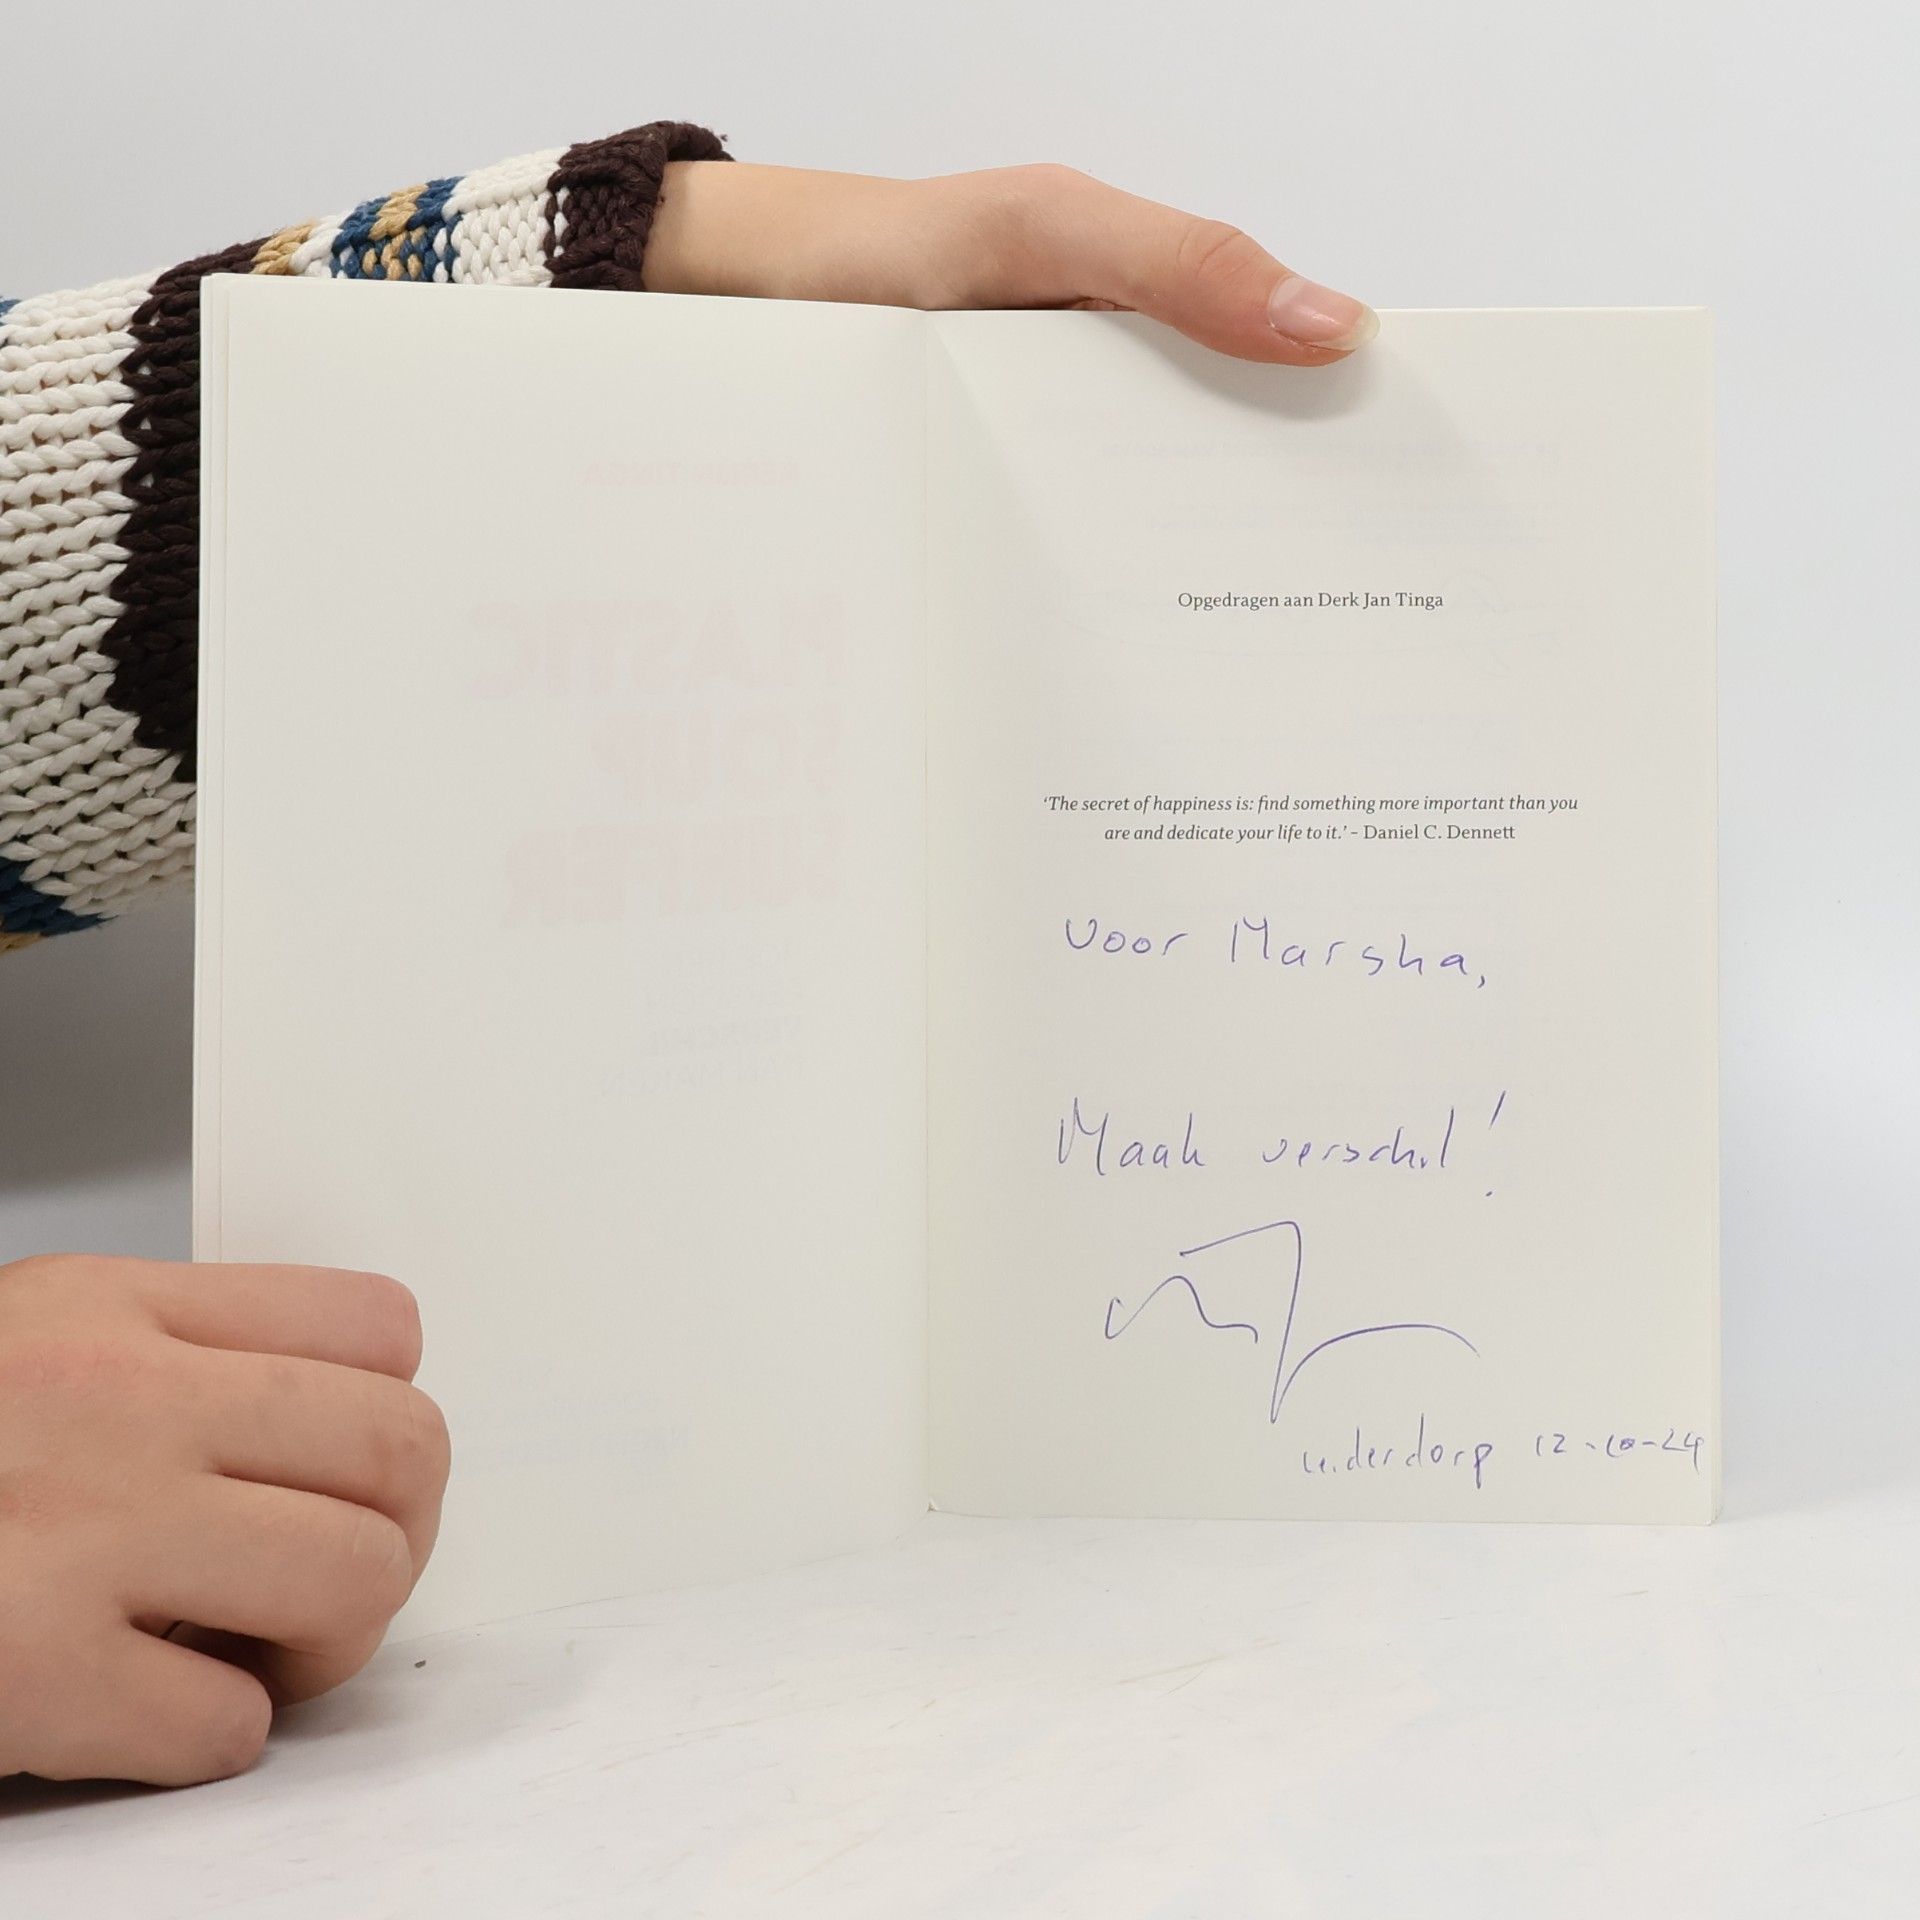 Opgedragen aan Derk Jan Tinga
‘The secret of happiness is: find something more important than you
are and dedicate your life to it.’ – Daniel C. Dennett
voor Marsha,
Maak verschil!
Leiderdorp 12-10-24